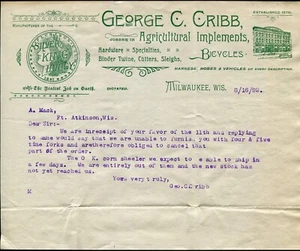 ESTABLISHED 1870.
GEORGE C. CRIBB,
JOBBER IN Agricultural Implements,
Hardware Specialties,
Binder Twine, Cutters, Sleighs,
BICYCLES
HARNESS, ROBES & VEHICLES OF EVERY DESCRIPTION.
MILWAUKEE, WIS.
A. Mack,
Ft. Atkinson, Wis.
Dear Sir:-
We are in receipt of your favor of the 11th and replying
to same would say that we are unable to furnish you with four & five
tine forks and are therefore obliged to cancel that
part of the order.
The O K corn sheeler we expect to be able to ship in
a few days. We are entirely out of them and the new stock has
not yet reached us.
Yours very truly,
Geo. C. Cribb
M